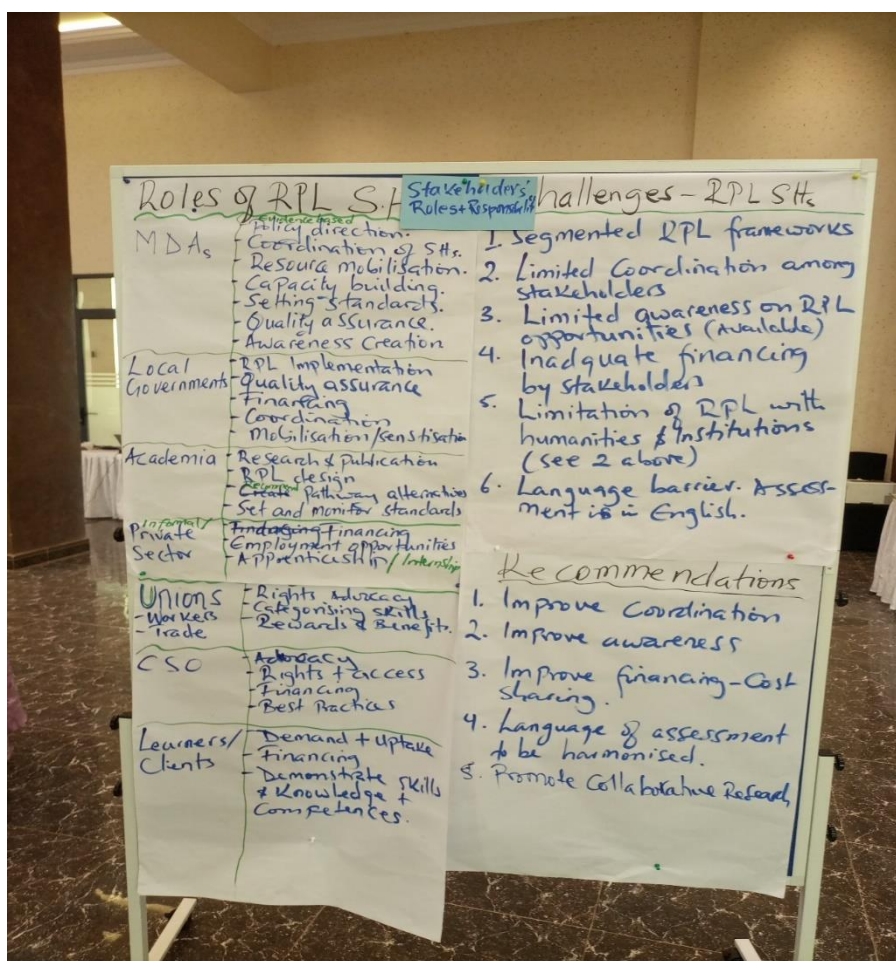 Stakeholders'
Roles + Responsibilit
Roles of RPL S.H
MDAs
evidence based
- Policy direction.
- Coordination of SHs.
- Resource mobilisation.
- Capacity building.
- Setting-standards.
- Quality assurance.
- Awareness Creation
Local
Governments
- RPL Implementation
- Quality assurance
- Financing
- Coordination
- Mobilisation/senstisation
Academia
- Research & publication
- RPL design
Recommend
- Create Pathway alternatives
- Set and monitor standards
Informal/
Private
Sector
- Financing
- Employment opportunities
- Apprenticeship/Internship
Unions
- Workers
- Trade
- Rights advocacy
- Categorising skills
- Rewards & Benefits.
CSO
- Advocacy
- Rights + access
- Financing
- Best Practices
Learners/
Clients
- Demand + Uptake
- Financing
- Demonstrate skills
& Knowledge +
Competences.
hallenges - RPL SHs
1. Segmented RPL frameworks
2. Limited Coordination among
stakeholders
3. Limited awareness on RPL
opportunities (Available)
4. Inadquate financing
by stakeholders
5. Limitation of RPL with
humanities & Institutions
(see 2 above)
6. Language barrier. Assess-
ment is in English.
Recommendations
1. Improve Coordination
2. Improve awareness
3. Improve financing-Cost
sharing.
4. Language of assessment
to be harmonised.
5. Promote Collaborative Research